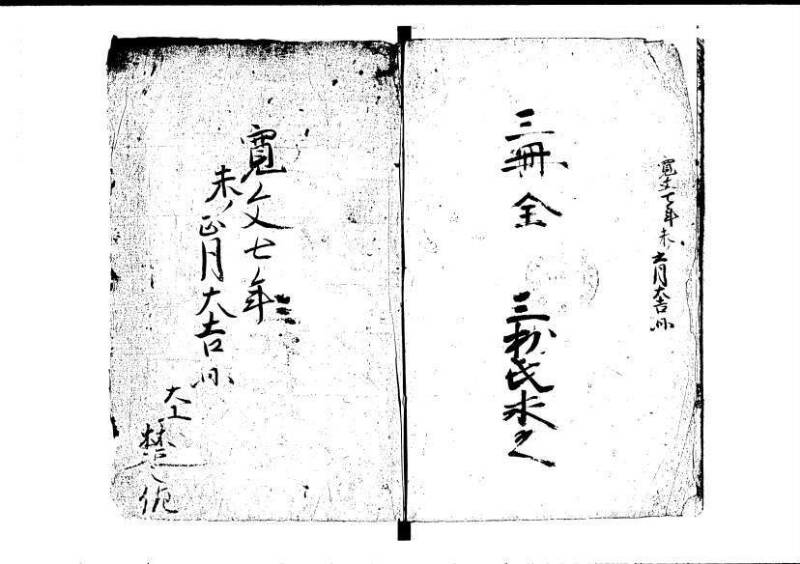 寛文七年未ノ六月大吉日
三冊全 三枩氏求之
寛文七年
未ノ正月大吉日
大工